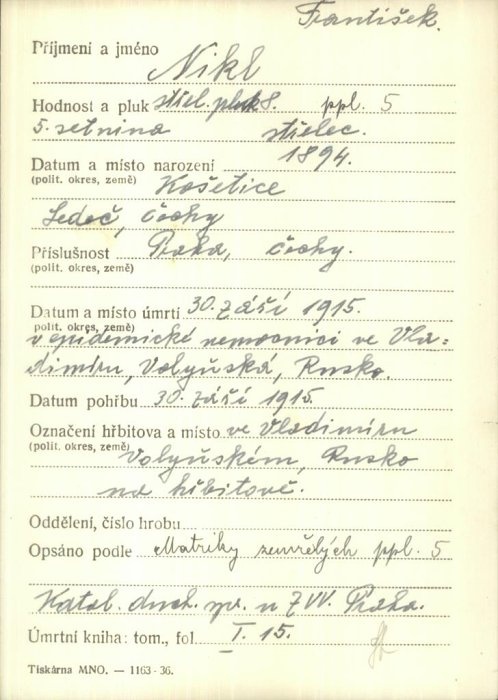 František.
Příjmení a jméno Nikl
Hodnost a pluk střel. pluk 8. ppl. 5
5. setnina střelec.
Datum a místo narození 1894.
(polit. okres, země) Košetice
Ledeč, Čechy
Příslušnost Praha, Čechy.
(polit. okres, země)
Datum a místo úmrtí 30. září 1915.
polit. okres, země)
v epidemické nemocnici ve Vla=
dimíru, Volyňská, Rusko.
Datum pohřbu 30. září 1915.
Označení hřbitova a místo ve Vladimíru
(polit. okres, země) Volyňském, Rusko
na hřbitově.
Oddělení, číslo hrobu
Opsáno podle Matriky zemřelých ppl. 5
Katol. duch. spr. u ZVV. Praha.
Úmrtní kniha: tom., fol. I. 15.
Tiskárna MNO. — 1163 - 36.